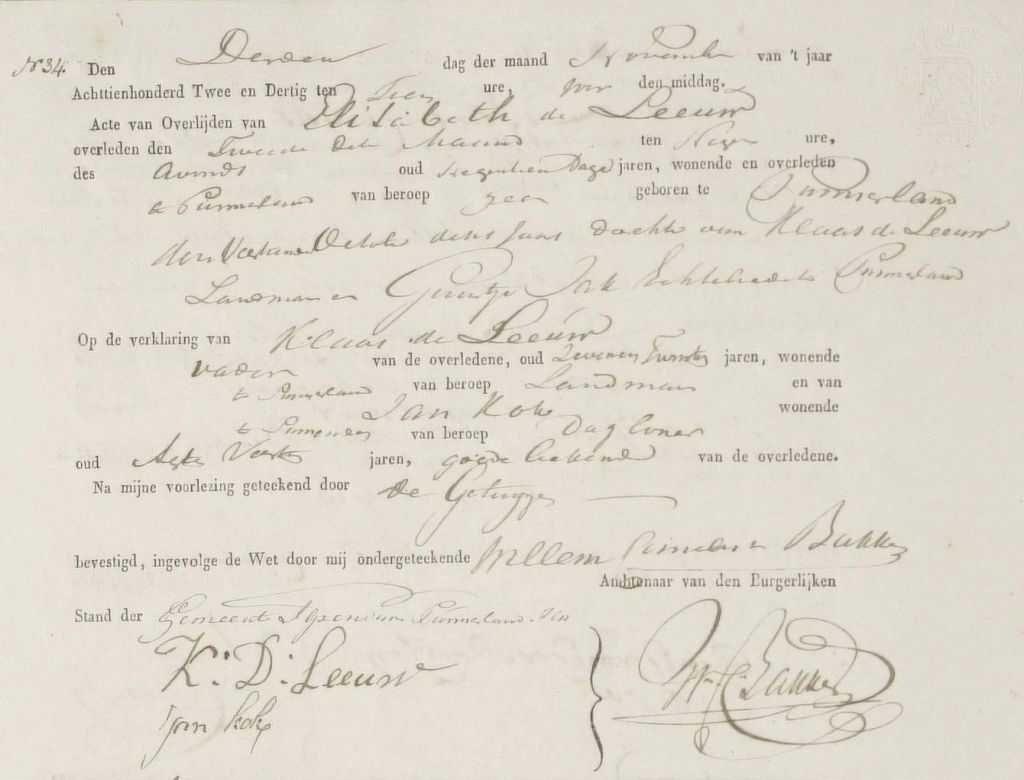 N 34. Den Derden dag der maand November van 't jaar
Achttienhonderd Twee en Dertig ten Tien ure, voor den middag.
Acte van Overlijden van Elisabeth de Leeuw
overleden den Tweede dezer Maand ten Negen ure,
des Avonds oud Negentien Dage jaren, wonende en overleden
te Purmerland van beroep geen geboren te Purmerland
den October dezes Jaars dochter van Klaas de Leeuw
Landman en Geertje te Purmerland
Op de verklaring van Klaas de Leeuw
vader van de overledene, oud Zeven en Twintig jaren, wonende
te Purmerland van beroep Landman en van
Jan Kok wonende
te van beroep Dagloner
oud Acht Veertig jaren, goede bekende van de overledene.
Na mijne voorlezing geteekend door de Getuigen
bevestigd, ingevolge de Wet door mij ondergeteekende Willem Bakker
Ambtenaar van den Burgerlijken
Stand der Gemeente Ilpendam Purmerland
K: D: Leeuw
Jan Kok
W. C. Bakker